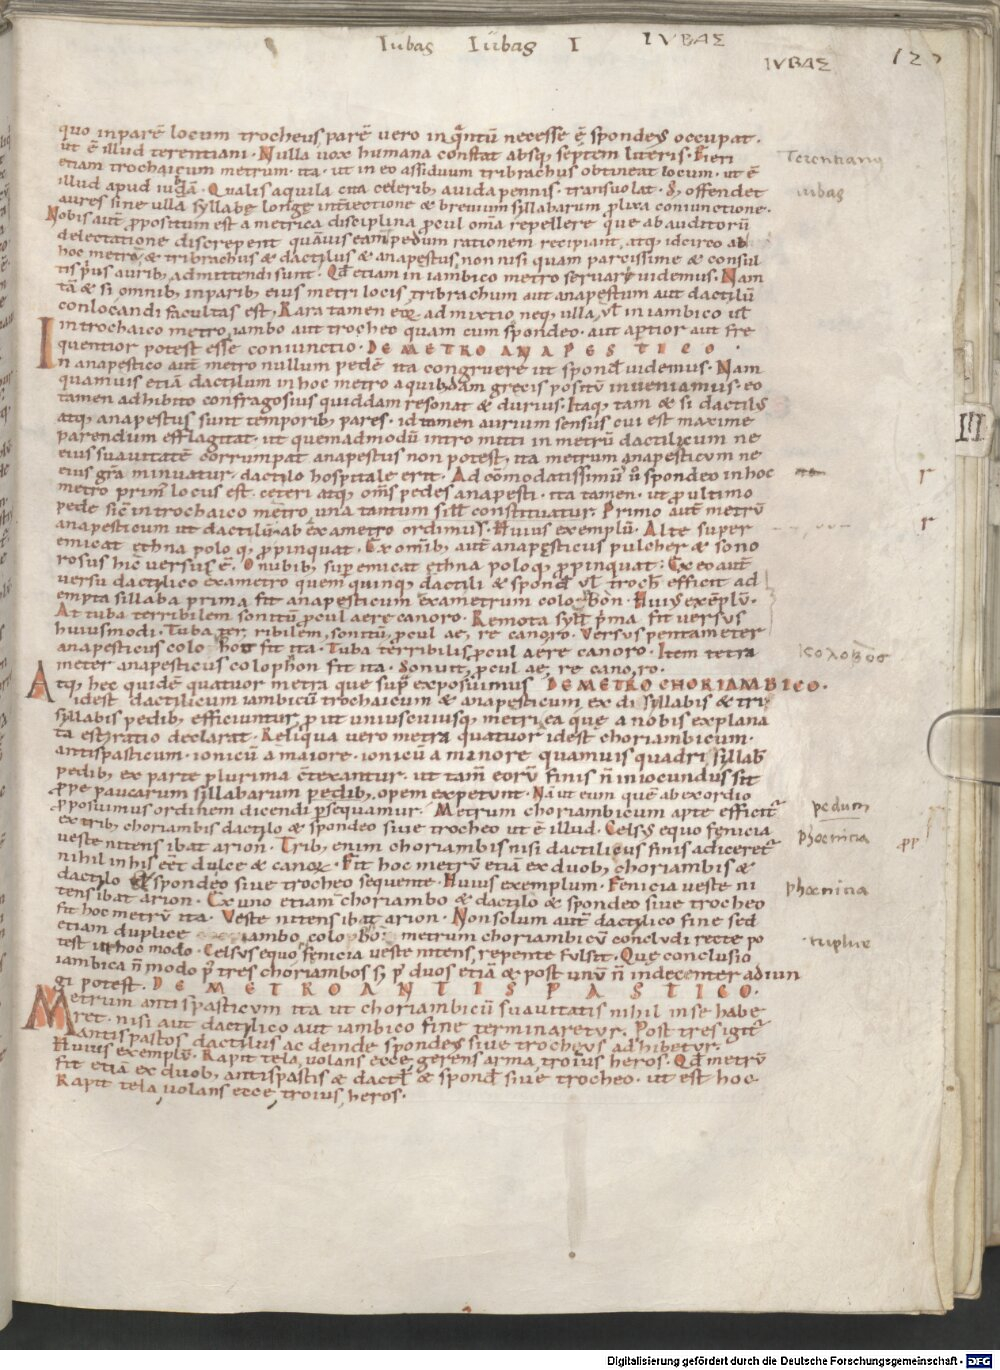 Iubas Iubas I IVBAS
IVBAS
127
quo inparē locum trocheus parē vero in q̄ntū necesse ē spondeꝰ occupat·
ut ē illud terentiani· Nulla uox humana constat absq; septem literis· Fieri
etiam trochaicum metrum· ita· ut in eo assiduum tribrachus obtineat locum· ut ē
illud apud iubā· Qualis aquila cita celerib; auida pennis· transuolat· S; offendet
aures sine ulla syllabę longę int̄iectione & breuium syllabarum p̱lixa coniunctione·
Nobis autē p̱positum est a metrica disciplina p̱cul om̄ia repellere que ab auditorū
delectatione discrepent quāuis eam pedum rationem recipiant, atq; idcirco ab
hoc metro, & tribrachus & dactilus & anapestus, non nisi quam parcissime & consul
tis p̱us aurib; admittendi sunt· Qđ etiam in iambico metro seruare uidemus· Nam
tā & si omnib; inparib; eius metri locis tribrachum aut anapestum aut dactilū
conlocandi facultas est, Rara tamen eoꝝ admixtio neq; ulla, ul̄ in iambico ul̄
in trochaico metro, iambo aut trocheo quam cum spondeo· aut aptior aut fre
quentior potest esse coniunctio· DE METRO ANAPESTICO·
In anapestico autē metro nullum pedē ita congruere ut spond̄ uidemus· Nam
quamuis etiā dactilum in hoc metro a quibdam grecis positū inueniamus· eo
tamen adhibito confragosius quiddam resonat & durius· Itaq; tam & si dactilꝰ
atq; anapestus sunt temporib; pares· id tamen aurium sensus cui est maxime
parendum efflagitat· ut quemadmodū intro mitti in metrū dactilicum ne
eius suauitatē corrumpat anapestus non potest, ita metrum anapesticum ne
eius gr̄a minuatur, dactilo hospitale erit· Ad cōmodatissimū u̓ spondeo in hoc
metro primꝰ locus est· ceteri atq; om̄s pedes anapesti· ita tamen· ut p̱ ultimo
pede sic̄ in trochaico metro, una tantum sill̄ constituatur· Primo autē metrū
anapesticum ut dactilū ab exametro ordimus· Huius exemplū· Alte super
emicat ethna polo q; p̱pinquat· Ex om̄ib; autē anapęsticus pulcher & sono
rosus hic versus ē· O nubib; sup̱ emicat ethna poloq; p̱pinquat: Ex eo autē
versu dactylico exametro quem quinq; dactili & spond̄ ul̄ troch̄ efficit ad
empta sillaba prima fit anapesticum exametrum colobōn· Huiꝰ exēplū·
At tuba terribilem sonitū p̱cul aere canoro· Remota syll̄ p̱ma fit versus
huiusmodi· Tuba ter, ribilem, sonitū, p̱cul ae, re canoro· Versus pentameter
anapesticus colo bon fit ita· Tuba terribilis p̱cul aere canoro· Item tetra
meter anapesticus colophon fit ita· Sonuit, p̱cul ae, re cano, ro·
Atq; hec quidē quatuor metra que sup̱ exposuimus DE METRO CHORIAMBICO·
idest dactilicum iambicū trochaicum & anapesticum, ex di syllabis & tri
syllabis pedib; efficiuntur, p̱ ut uniuscuiusq; metri ea que a nobis explana
ta est ratio declarat· Reliqua vero metra quatuor idest choriambicum·
antispasticum· ionicū a maiore· ionicū a minore quamuis quadri syllab̄
pedib; ex parte plurima c̄texantur· ut tam̄ eorū finis n̄ iniocundus sit
p̱pe paucarum sillabarum pedib; opem expetunt· Nā ut eum quē ab exordio
p̱posuimus ordinem dicendi p̱sequamur· Metrum choriambicum apte efficit᷑
ex trib; choriambis dactilo & spondeo siue trocheo ut ē illud· Celsꝰ equo fenicia
ueste nitens ibat arion· Trib; enim choriambis nisi dactilicus finis adiceret᷑
nihil in his eēt dulce & canoꝝ· Fit hoc metrū etiā ex duob; choriambis &
dactilo & spondeo siue trocheo sequente· Huius exemplum· Fenicia ueste ni
tens ibat arion· Ex uno etiam choriambo & dactilo & spondeo siue trocheo
fit hoc metrū ita· Veste nitens ibat arion· Non solum autē dactylico fine sed
etiam duplice iambo, colobō metrum choriambicū concludi recte po
test ut hoc modo· Celsus equo, fenicia ueste nitens, repente fulsit· Que conclusio
iambica n̄ modo p᷑ tres choriambos s; p᷑ duos etiā & post unū n̄ indecenter adiun
gi potest· DE METRO ANTISPASTICO·
Metrum antispasticum ita ut choriambicū suauitatis nihil in se habe
ret· nisi aut dactylico aut iambico fine terminaretur· Post tres igit᷑
antispastos dactilus ac deinde spondeꝰ siue trocheus adhibetur·
Huius exemplū· Rapit tela, uolans ecce, gerens arma, troius heros· Qđ metrū
fit etiā ex duob; antispastis & dactl̄ & spond̄ siue trocheo· ut est hoc·
Rapit tela, uolans ecce, troius, heros·
Terentianus
iubas
III
κολοβος
pedum
phoenicia
pp
phoenicia
triplice
Digitalisierung gefördert durch die Deutsche Forschungsgemeinschaft - DFG